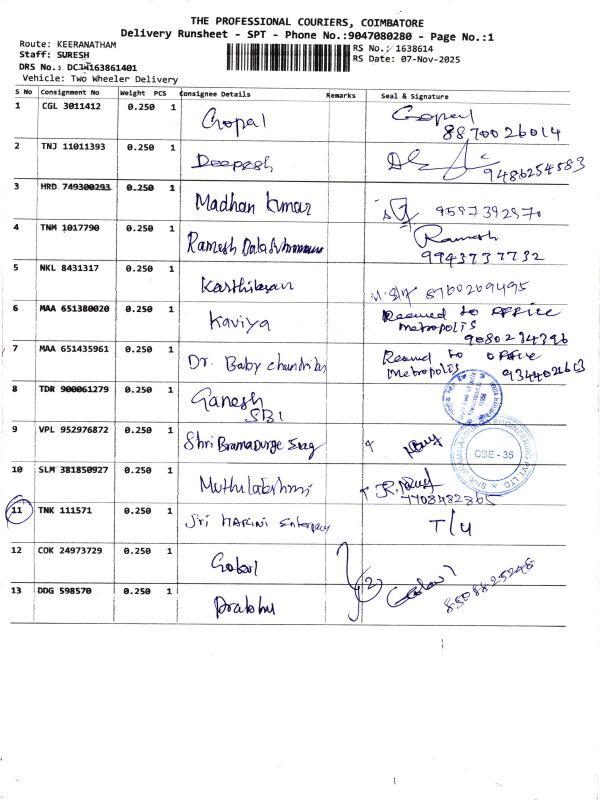 THE PROFESSIONAL COURIERS, COIMBATORE
Delivery Runsheet - SPT - Phone No.:9047080280 - Page No.:1
Route: KEERANATHAM
RS No.: 1638614
Staff: SURESH
RS Date: 07-Nov-2025
DRS No.:
Vehicle: Two Wheeler Delivery
S No Consignment No Weight PCS Consignee Details Remarks Seal & Signature
1 CGL 3011412 0.250 1 Gopal Gopal
8870026014
2 TNJ 11011393 0.250 1 Deepesh
9486254583
3 HRD 749300293 0.250 1 Madhan Kumar
4 TNM 1017790 0.250 1 Ramesh Ramesh
9943737732
5 NKL 8431317 0.250 1 Karthikeyan
6 MAA 651380020 0.250 1 Kaviya to office
Metropolis
7 MAA 651435961 0.250 1 Dr. Baby to office
Metropolis
8 TDR 900061279 0.250 1 Ganesh
SBI
9 VPL 952976872 0.250 1 Shri
CBE - 35
10 SLM 381850927 0.250 1 Muthulakshmi
11 TNK 111571 0.250 1 Sri HARINI T/U
12 COK 24973729 0.250 1 Gobal
2
8508825248
13 DDG 598570 0.250 1 Prabhu